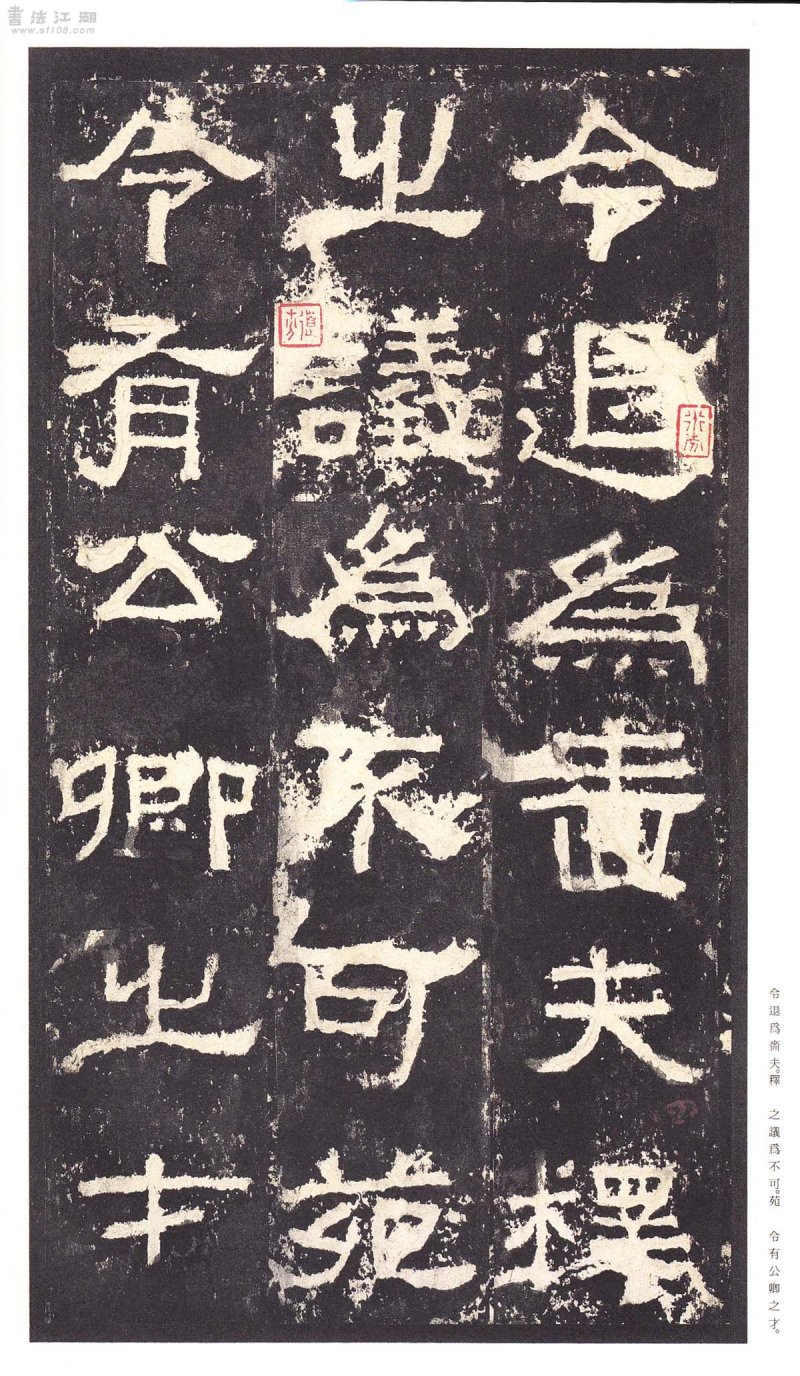 書法江湖
www.af108.com
令退為啬夫釋
之議為不可苑
令有公卿之才
令退爲嗇夫。釋 之議爲不可。苑 令有公卿之才。